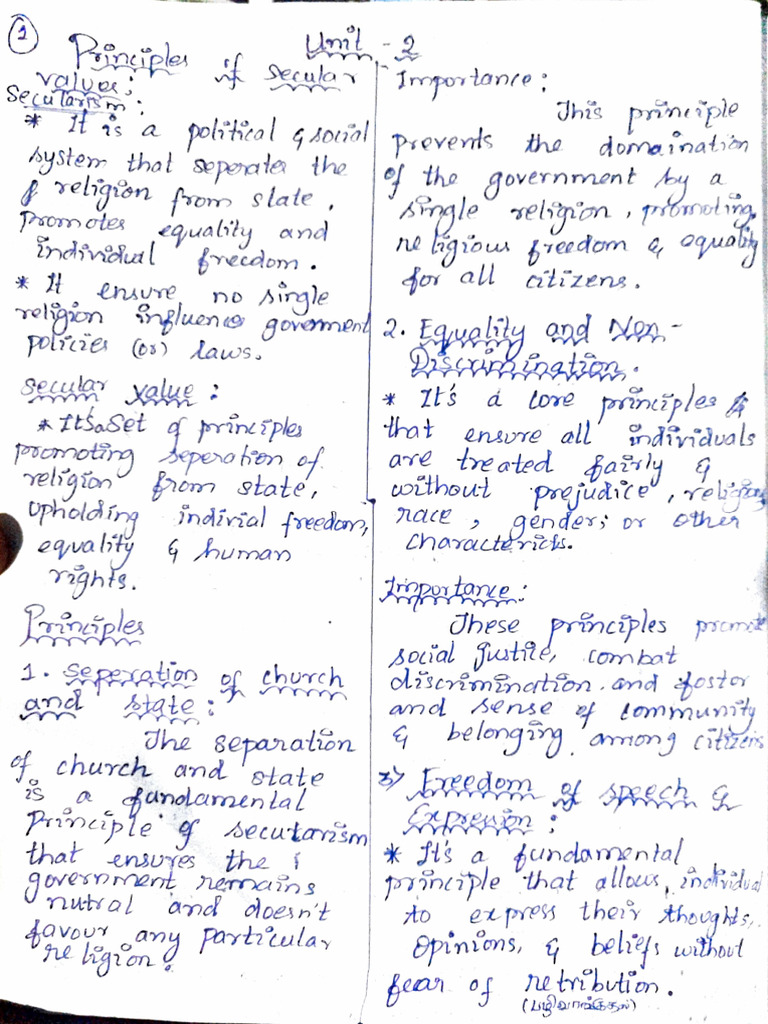 1
Unit - 2
Principles of secular
values:
Secularism:
* It is a political & social
system that seperates the
of religion from state,
promotes equality and
individual freedom.
* It ensure no single
religion influences goverment
policies (or) laws.
Secular value:
* It's a Set of principles
promoting seperation of
religion from state,
upholding indivial freedom,
equality & human
rights.
Principles
1. Seperation of church
and state:
The separation
of church and state
is a fundamental
Principle of secularism
that ensures the
government remains
nutral and doesn't
favour any particular
religion.
Importance:
This principle
prevents the domaination
of the government by a
single religion, promoting
religious freedom & equality
for all citizens.
2. Equality and Non-
Discrimination.
* It's a core principles
that ensure all individuals
are treated fairly &
without prejudice, religion,
race, gender, or other
characterictis.
Importance:
These principles promote
social justice, combat
discrimination and foster
and sense of community
& belonging among citizens
3) Freedom of speech &
Expression:
* It's a fundamental
principle that allows individual
to express their thoughts,
opinions, & beliefs without
fear of retribution.
(பழிவாங்குதல்)